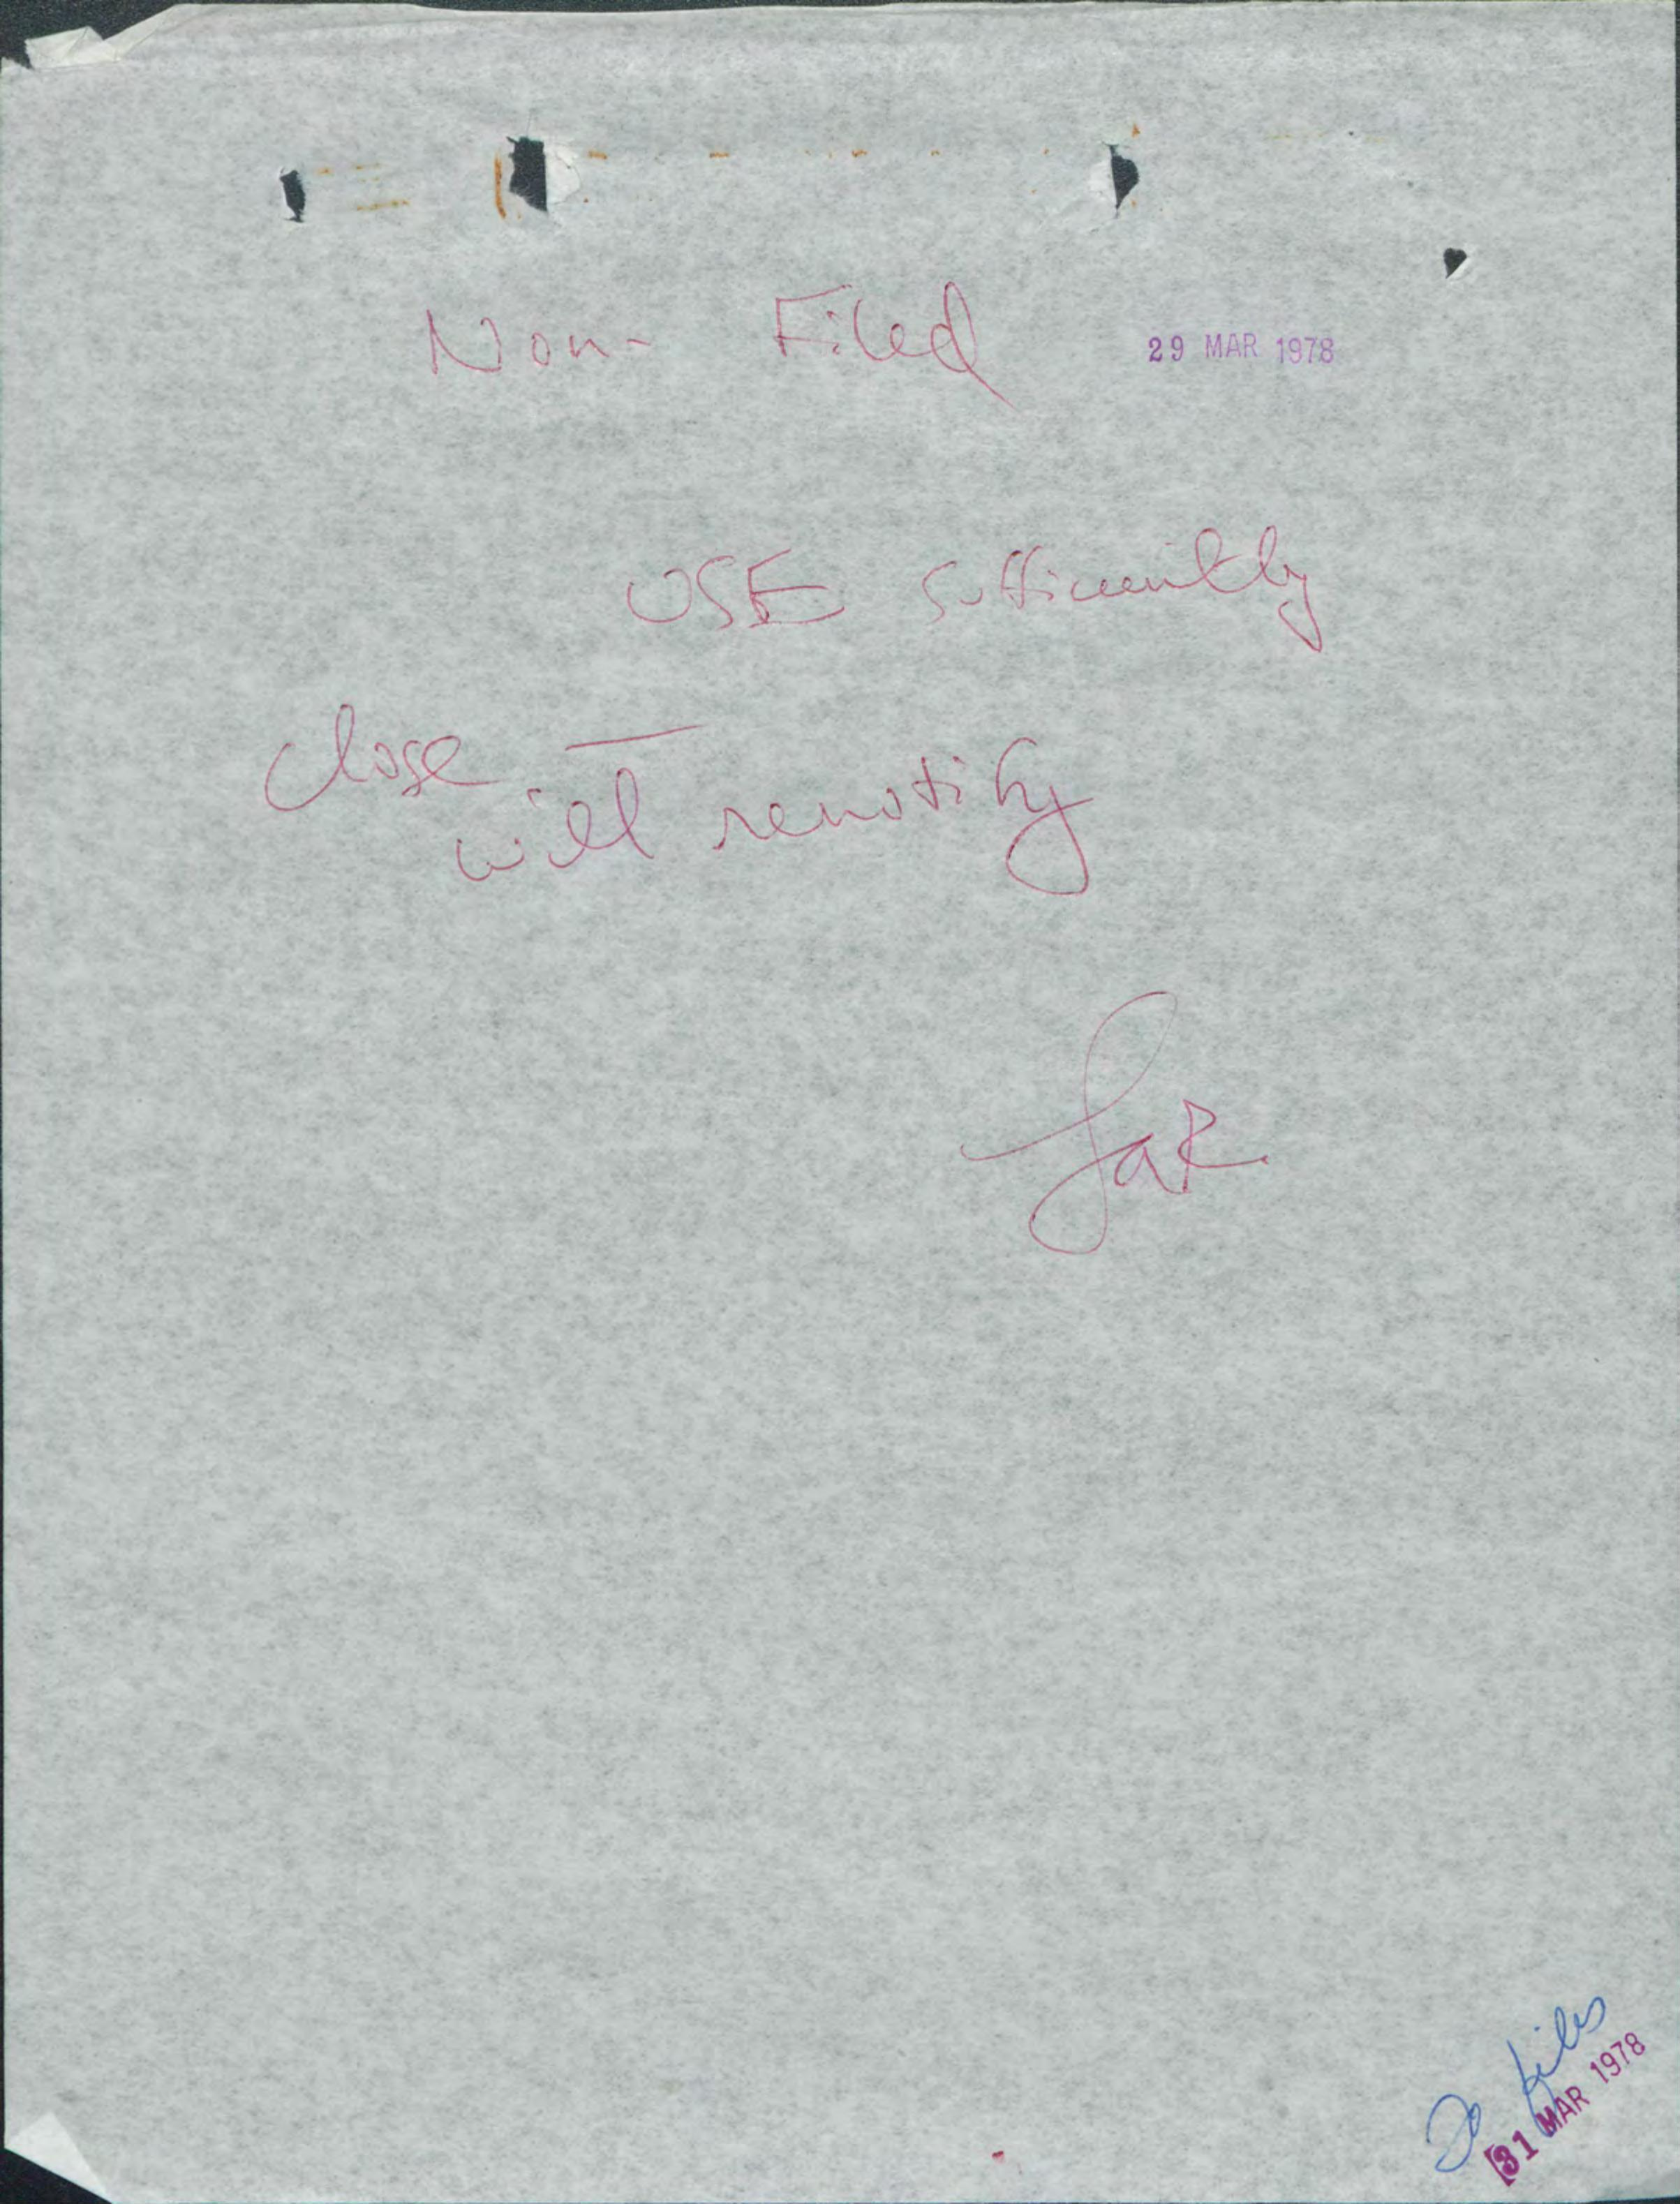 Non- Filed 29 MAR 1978
USE sufficiently
close —
will renotify
JaR
To files
31 MAR 1978